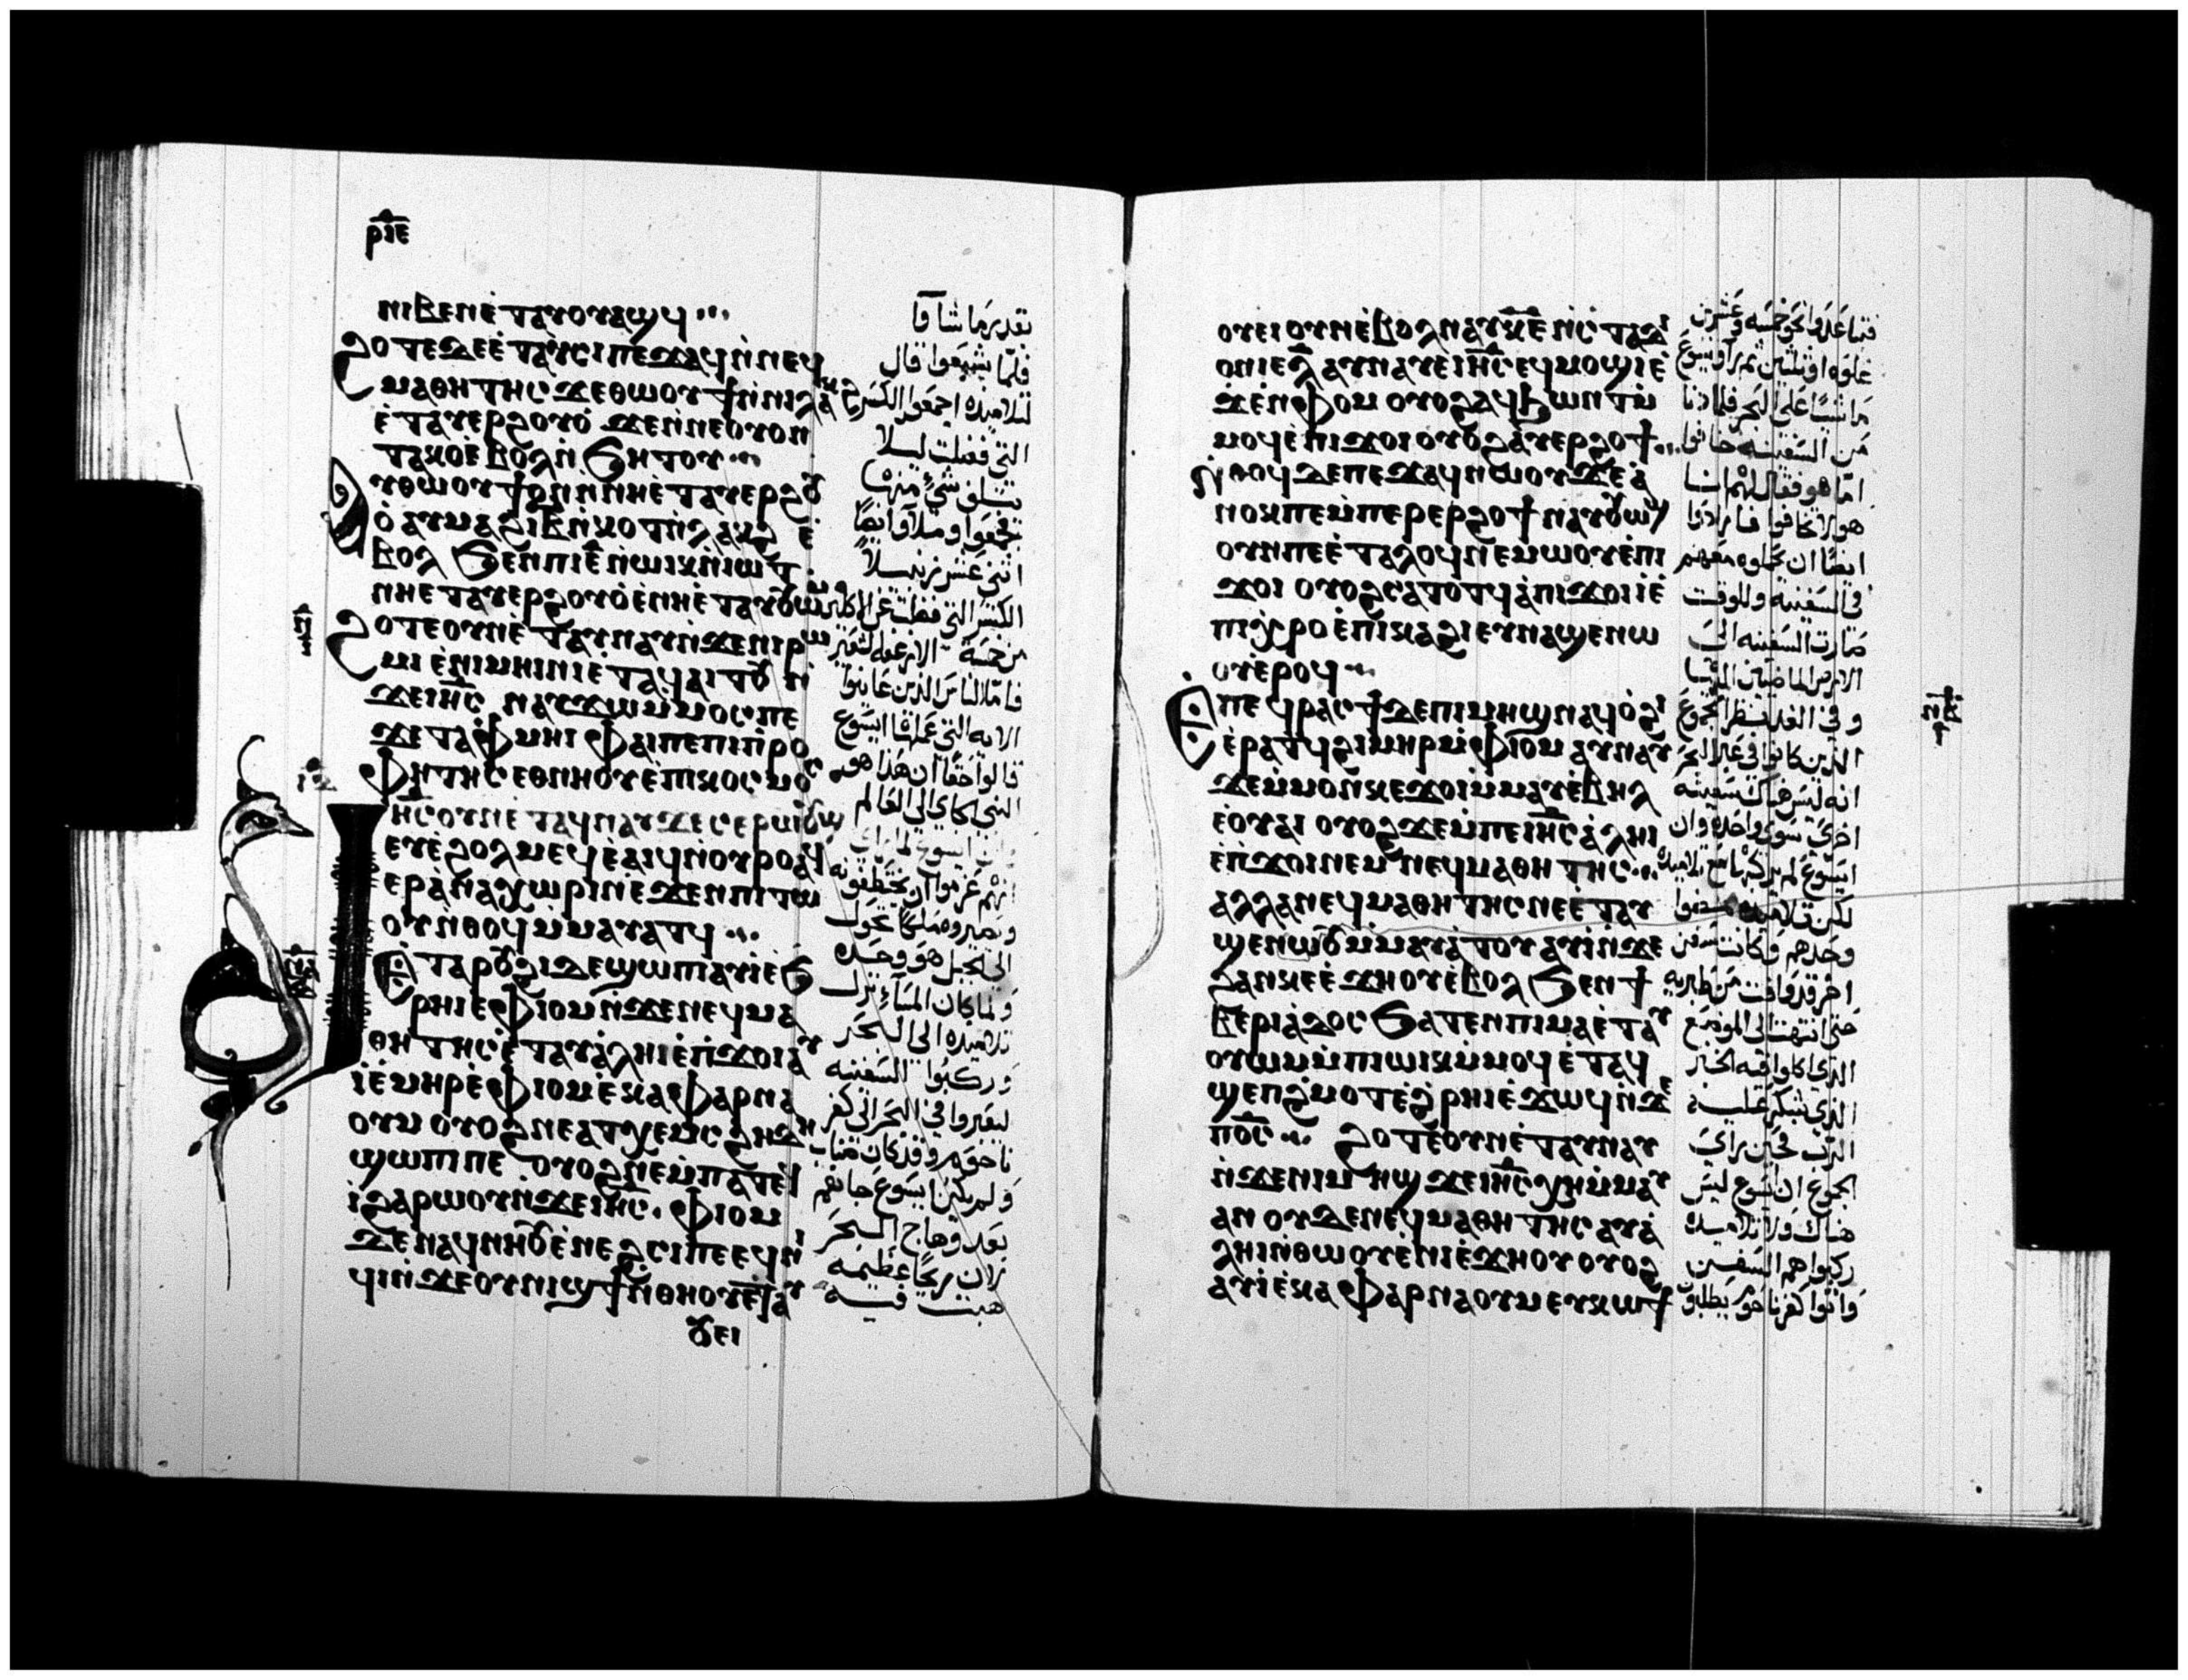 ⲣⲓⲉ
ⲛⲓⲃⲉⲛ ⲉ̀ⲧⲁⲩⲟⲩⲁϣϥ
ϩⲟⲧⲉ ⲇⲉ ⲉ̀ⲧⲁⲩⲥⲓ ⲡⲉϫⲁϥ ⲛ̀ⲛⲉϥ
ⲙⲁⲑⲏⲧⲏⲥ ϫⲉ ⲑⲱⲟⲩϯ ⲛ̀ⲛⲓⲗⲁⲕϩ
ⲉ̀ⲧⲁⲩⲉⲣϩⲟⲩⲟ̀ ϫⲉ ⲛ̀ⲛⲉ ⲟⲩⲟⲛ
ⲧⲁⲕⲟ ⲉ̀ⲃⲟⲗ ⲛ̀ϧⲏⲧⲟⲩ
ⲁⲩⲑⲱⲟⲩϯ ⲟⲩⲛ ⲛ̀ⲛⲏ ⲉ̀ⲧⲁⲩⲉⲣϩⲟⲩ
ⲟ̀ ⲁⲩⲙⲁϩ ⲓ̅ⲃ̅ ⲛ̀ⲕⲟⲧ ⲛ̀ⲗⲁⲕϩ ⲉ̀
ⲃⲟⲗ ϧⲉⲛ ⲡⲓⲉ̅ ⲛ̀ⲱⲓⲕ ⲛ̀ⲓⲱⲧ
ⲛⲏ ⲉⲧⲁⲩⲉⲣϩⲟⲩⲟ̀ ⲉ̀ⲛⲏ ⲉ̀ⲧⲁⲩⲟⲩⲱⲙ
ϩⲟⲧⲉ ⲟⲩⲛ ⲉ̀ⲧⲁⲩⲛⲁⲩ ⲛ̀ϫⲉ ⲛⲓⲣⲱ
ⲙⲓ ⲉ̀ⲛⲓⲙⲏⲓⲛⲓ ⲉ̀ⲧⲁϥⲁⲓⲧⲟⲩ ⲛ̀
ϫⲉ ⲓⲏ̅ⲥ̅ ⲛⲁⲩϫⲱ ⲙ̀ⲙⲟⲥ ⲡⲉ
ϫⲉ ⲧⲁⲫⲙⲏⲓ ⲫⲁⲓ ⲡⲉ ⲡⲓⲡⲣⲟ
ⲫⲏⲧⲏⲥ ⲉⲑⲛⲏⲟⲩ ⲉ̀ⲡⲓⲕⲟⲥⲙⲟⲥ
ⲓⲏ̅ⲥ̅ ⲟⲩⲛ ⲉ̀ⲧⲁϥⲛⲁⲩ ϫⲉ ⲥⲉⲣⲱⲓⲥ
ⲉⲩⲉ̀ϩⲟⲗⲙⲉϥ ⲉ̀ⲁⲓϥ ⲛ̀ⲟⲩⲣⲟ ⲁϥ
ⲉⲣⲁ̀ⲛⲁⲭⲱⲣⲓⲛ ⲉ̀ϫⲉⲛ ⲡⲓⲧⲱ
ⲟⲩ ⲛ̀ⲑⲟϥ ⲙ̀ⲙⲁⲩⲁⲧϥ
ⲉ̀ⲧⲁ ⲣⲟⲩϩⲓ ⲇⲉ ϣⲱⲡⲓ ⲁⲩⲓ̀ ⲉ̀ϧ
ⲣⲏⲓ ⲉ̀ⲫⲓⲟⲙ ⲛ̀ϫⲉ ⲛⲉϥⲙⲁ
ⲑⲏⲧⲏⲥ ⲉ̀ⲧⲁⲩⲁ̀ⲗⲏⲓ ⲉ̀ⲡ̀ϫⲟⲓ ⲁⲩ
ⲓ̀ ⲉ̀ⲙⲏⲣ ⲉ̀ⲫⲓⲟⲙ ⲉ̀ⲕⲁⲫⲁⲣⲛⲁ
ⲟⲩⲙ ⲟⲩⲟϩ ⲛⲉ ⲁⲧⲭⲉⲙⲥ ϩⲏⲇⲏ
ϣⲱⲡⲓ ⲡⲉ ⲟⲩⲟϩ ⲛⲉ ⲙ̀ⲡⲁⲧⲉϥ
ⲓ̀ ϩⲁⲣⲱⲟⲩ ⲛ̀ϫⲉ ⲓⲏ̅ⲥ̅ ⲫⲓⲟⲙ
ⲇⲉ ⲛⲁϥⲛⲏⲟⲩ ⲉ̀ⲛⲉϩⲥⲓ ⲡⲉ ⲉϥⲛⲓ
ϥⲓ ⲛ̀ϫⲉ ⲟⲩⲛⲓϣϯ ⲛ̀ⲑⲏⲟⲩ ⲉ̀ⲧⲁⲩ
ⲟⲩⲉⲓ
بقدر ما شاوا
فلما شبعوا قال
لتلاميذه اجمعوا الكسر
التي فضلت ليلا
يتلف شي منها
فجمعوا وملاوا
اثنى عشر زنبيلا
الكسر التي فضلت عن الاكلين
من خمسة الارغفة الشعير
فاما الناس الذين عاينوا
الاية التي عملها ايسوع
قالوا حقا ان هذا هو
النبي الاتي الى العالم
انهم عزموا ان يختطفونه
ويصيروه ملكا تحول
الى الجبل هو وحده
ولما كان المساء نزل
تلاميذه الى البحر
وركبوا السفينه
ليعبروا في البحر الى كفر
ناحوم وقد كان ضباب
ولم يكن ايسوع جاهم
بعد وهاج البحر
لان ريحا عظيمه
هبت فيه
ⲟⲩⲉⲓ ⲟⲩⲛ ⲉ̀ⲃⲟⲗ ⲛⲁⲩ ⲕ̅ⲉ̅ ⲛ̀ⲥ̀ⲧⲁⲇⲓ
ⲟⲛ ⲓⲉ ⲗ̅ ⲁⲩⲛⲁⲩ ⲉ̀ⲓⲏ̅ⲥ̅ ⲉϥⲙⲟϣⲓ ⲉ̀
ϫⲉⲛ ⲫⲓⲟⲙ ⲟⲩⲟϩ ⲁϥϧⲱⲛⲧ ⲙ̀
ⲙⲟϥ ⲉ̀ⲡⲓϫⲟⲓ ⲟⲩⲟϩ ⲁⲩⲉⲣϩⲟϯ
ⲛ̀ⲑⲟϥ ⲇⲉ ⲡⲉϫⲁϥ ⲛⲱⲟⲩ ϫⲉ ⲁ̀
ⲛⲟⲕ ⲡⲉ ⲙ̀ⲡⲉⲣⲉⲣϩⲟϯ ⲛⲁⲩⲟⲩⲱϣ
ⲟⲩⲛ ⲡⲉ ⲉ̀ⲧⲁⲗⲟϥ ⲛⲉⲙⲱⲟⲩ ⲉ̀ⲡⲓ
ϫⲟⲓ ⲟⲩⲟϩ ⲥⲁⲧⲟⲧϥ ⲁ̀ ⲡⲓϫⲟⲓ ⲓ̀ ⲉ̀
ⲡⲓⲭⲣⲟ ⲉ̀ⲡⲓⲕⲁϩⲓ ⲉⲩⲛⲁϣⲉ ⲛⲱ
ⲟⲩ ⲉ̀ⲣⲟϥ
ⲉ̀ⲡⲉϥⲣⲁⲥϯ ⲇⲉ ⲡⲓⲙⲏϣ ⲛⲁϥⲟ̀ϩⲓ
ⲉ̀ⲣⲁⲧϥ ϩⲓⲙⲏⲣ ⲙ̀ⲫⲓⲟⲙ ⲁⲩⲛⲁⲩ
ϫⲉ ⲙ̀ⲙⲟⲛ ⲕⲉϫⲟⲓ ⲙ̀ⲙⲁⲩ ⲉ̀ⲃⲏⲗ
ⲉ̀ⲟⲩⲁⲓ ⲟⲩⲟϩ ϫⲉ ⲙ̀ⲡⲉ ⲓⲏ̅ⲥ̅ ⲁ̀ⲗⲏⲓ
ⲉ̀ⲡ̀ϫⲟⲓ ⲛⲉⲙ ⲛⲉϥⲙⲁⲑⲏⲧⲏⲥ
ⲁⲗⲗⲁ ⲛⲉϥⲙⲁⲑⲏⲧⲏⲥ ⲛⲉ ⲉ̀ⲧⲁⲩ
ϣⲉ ⲛⲱⲟⲩ ⲙ̀ⲙⲁⲩⲁ̀ⲧⲟⲩ ⲁⲩⲓ̀ ⲛ̀ϫⲉ
ϩⲁⲛⲕⲉⲉ̀ϫⲏⲟⲩ ⲉ̀ⲃⲟⲗ ϧⲉⲛ ϯ
ⲃⲉⲣⲓⲁ̀ⲇⲟⲥ ϧⲁⲧⲉⲛ ⲡⲓⲙⲁ ⲉ̀ⲧⲁⲩ
ⲟⲩⲱⲙ ⲙ̀ⲡⲓⲱⲓⲕ ⲙ̀ⲙⲟϥ ⲉ̀ⲧⲁϥ
ϣⲉⲡϩⲙⲟⲧ ⲉ̀ϩ̀ⲣⲏⲓ ⲉ̀ϫⲱϥ ⲛ̀ϫⲉ
ⲡⲟ̅ⲥ̅ ϩⲟⲧⲉ ⲟⲩⲛ ⲉ̀ⲧⲁⲩⲛⲁⲩ
ⲛ̀ϫⲉ ⲛⲓⲙⲏϣ ϫⲉ ⲓⲏ̅ⲥ̅ ⲭⲏ ⲙ̀ⲙⲁⲩ
ⲁⲛ ⲟⲩⲇⲉ ⲛⲉϥⲙⲁⲑⲏⲧⲏⲥ ⲁⲩⲁ̀
ⲗⲏⲓ ⲛ̀ⲑⲱⲟⲩ ⲉ̀ⲛⲓⲉ̀ϫⲏⲟⲩ ⲟⲩⲟϩ
ⲁⲩⲓ̀ ⲉ̀ⲕⲁⲫⲁⲣⲛⲁⲟⲩⲙ ⲉⲩⲕⲱϯ
فتباعدوا نحو خمسه وعشرين
غلوه او ثلثين نظروا يسوع
ماشيا على البحر فلما دنا
من السفينه خافوا
اما هو فقال لهم انا
هو لا تخافوا فارادوا
ايضا ان يحملوه معهم
في السفينه وللوقت
صارت السفينه الى
الارض الماضيين اليها
وفي الغد نظر الجموع
الذين كانوا في عبر البحر
انه ليس هناك سفينه
اخرى سوى واحده وان
ايسوع لم يركبها مع تلاميذه
لكن تلاميذه مضوا
وحدهم وكانت سفن
اخر قد وافت من طبريه
حتى انتهت الى الموضع
الذي اكلوا فيه الخبز
الذي شكر عليه
الرب فحين راى
الجموع ان يسوع ليس
هناك ولا تلاميذه
ركبوا هم السفن
واتوا كفرناحوم يطلبون